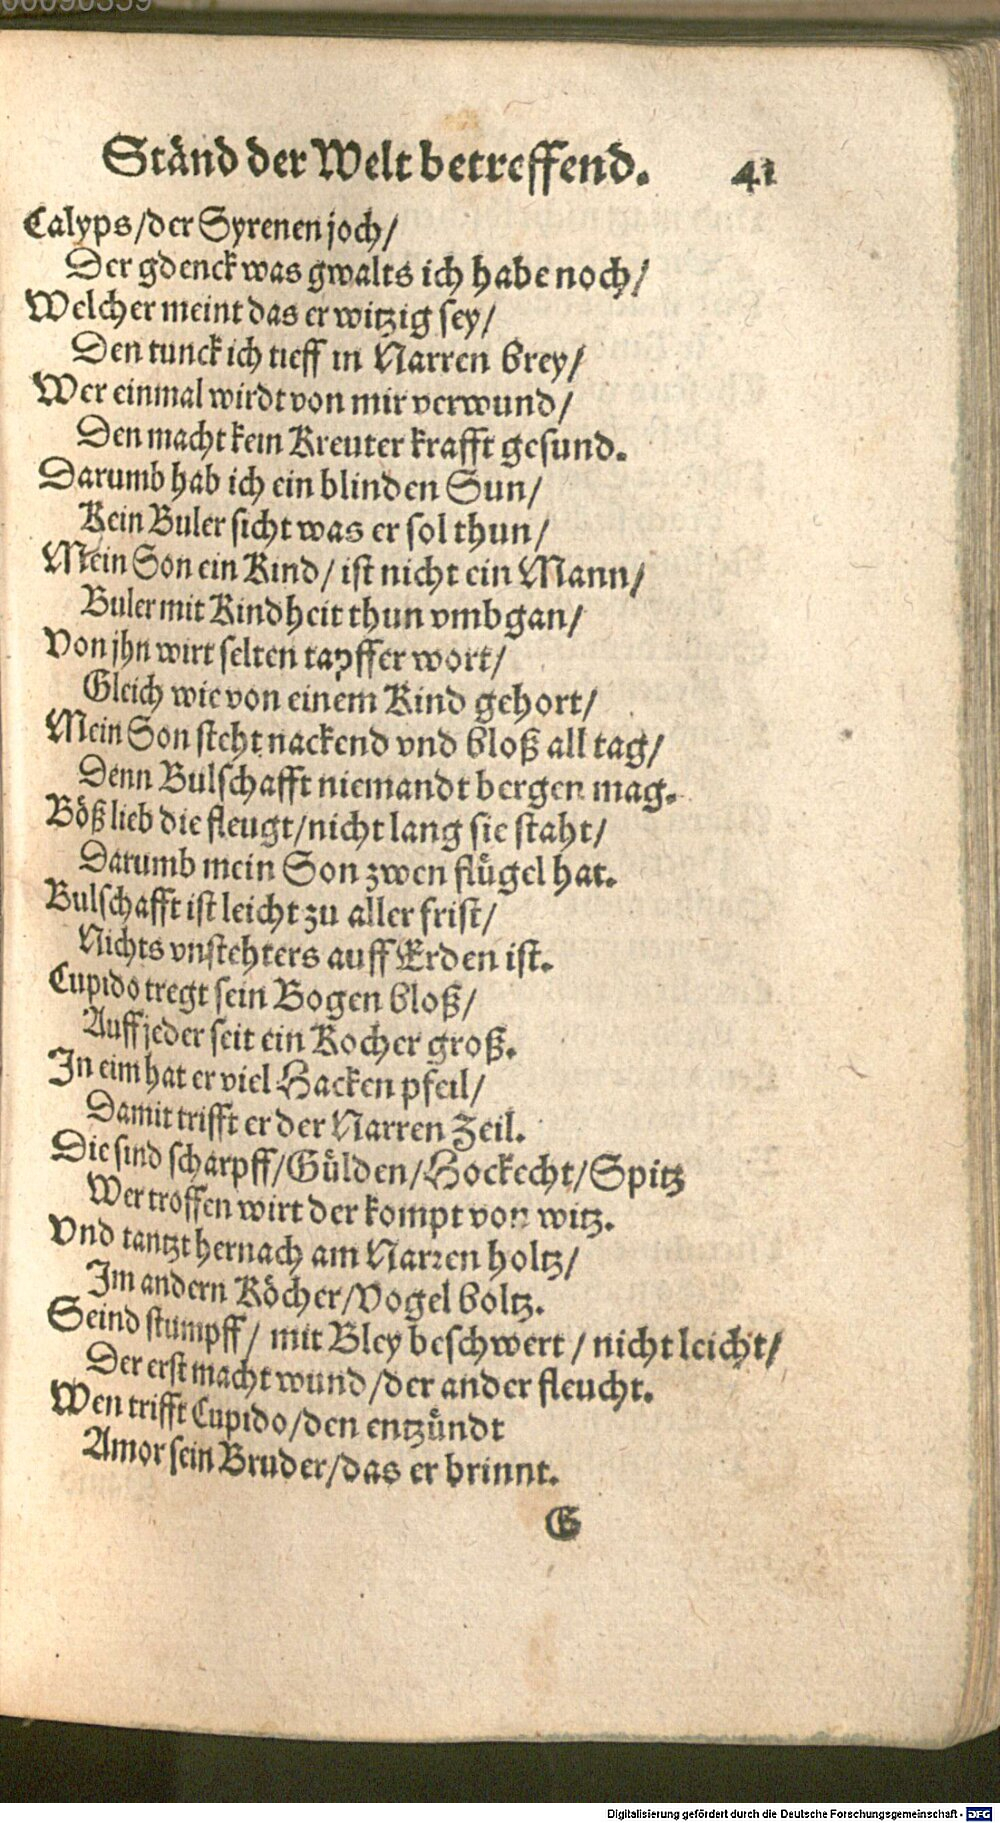 00090359
Ständ der Welt betreffend. 41
Calyps/der Syrenen joch/
Der gdenck was gwalts ich habe noch/
Welcher meint das er witzig sey/
Den tunck ich tieff in Narren brey/
Wer einmal wirdt von mir verwund/
Den macht kein Kreuter krafft gesund.
Darumb hab ich ein blinden Sun/
Kein Buler sicht was er sol thun/
Mein Son ein Kind/ ist nicht ein Mann/
Buler mit Kindheit thun vmbgan/
Von jhn wirt selten tapffer wort/
Gleich wie von einem Kind gehort/
Mein Son steht nackend vnd bloß all tag/
Denn Bulschafft niemandt bergen mag.
Böß lieb die fleugt/nicht lang sie staht/
Darumb mein Son zwen flügel hat.
Bulschafft ist leicht zu aller frist/
Nichts vnstehters auff Erden ist.
Cupido tregt sein Bogen bloß/
Auff jeder seit ein Kocher groß.
In eim hat er viel Hacken pfeil/
Damit trifft er der Narren Zeil.
Die sind scharpff/Gülden/Hockecht/Spitz
Wer troffen wirt der kompt von witz.
Vnd tantzt hernach am Narren holtz/
Im andern Köcher/Vogel boltz.
Seind stumpff/ mit Bley beschwert / nicht leicht/
Der erst macht wund/der ander fleucht.
Wen trifft Cupido/den entzündt
Amor sein Bruder/das er brinnt.
G
Digitalisierung gefördert durch die Deutsche Forschungsgemeinschaft - DFG